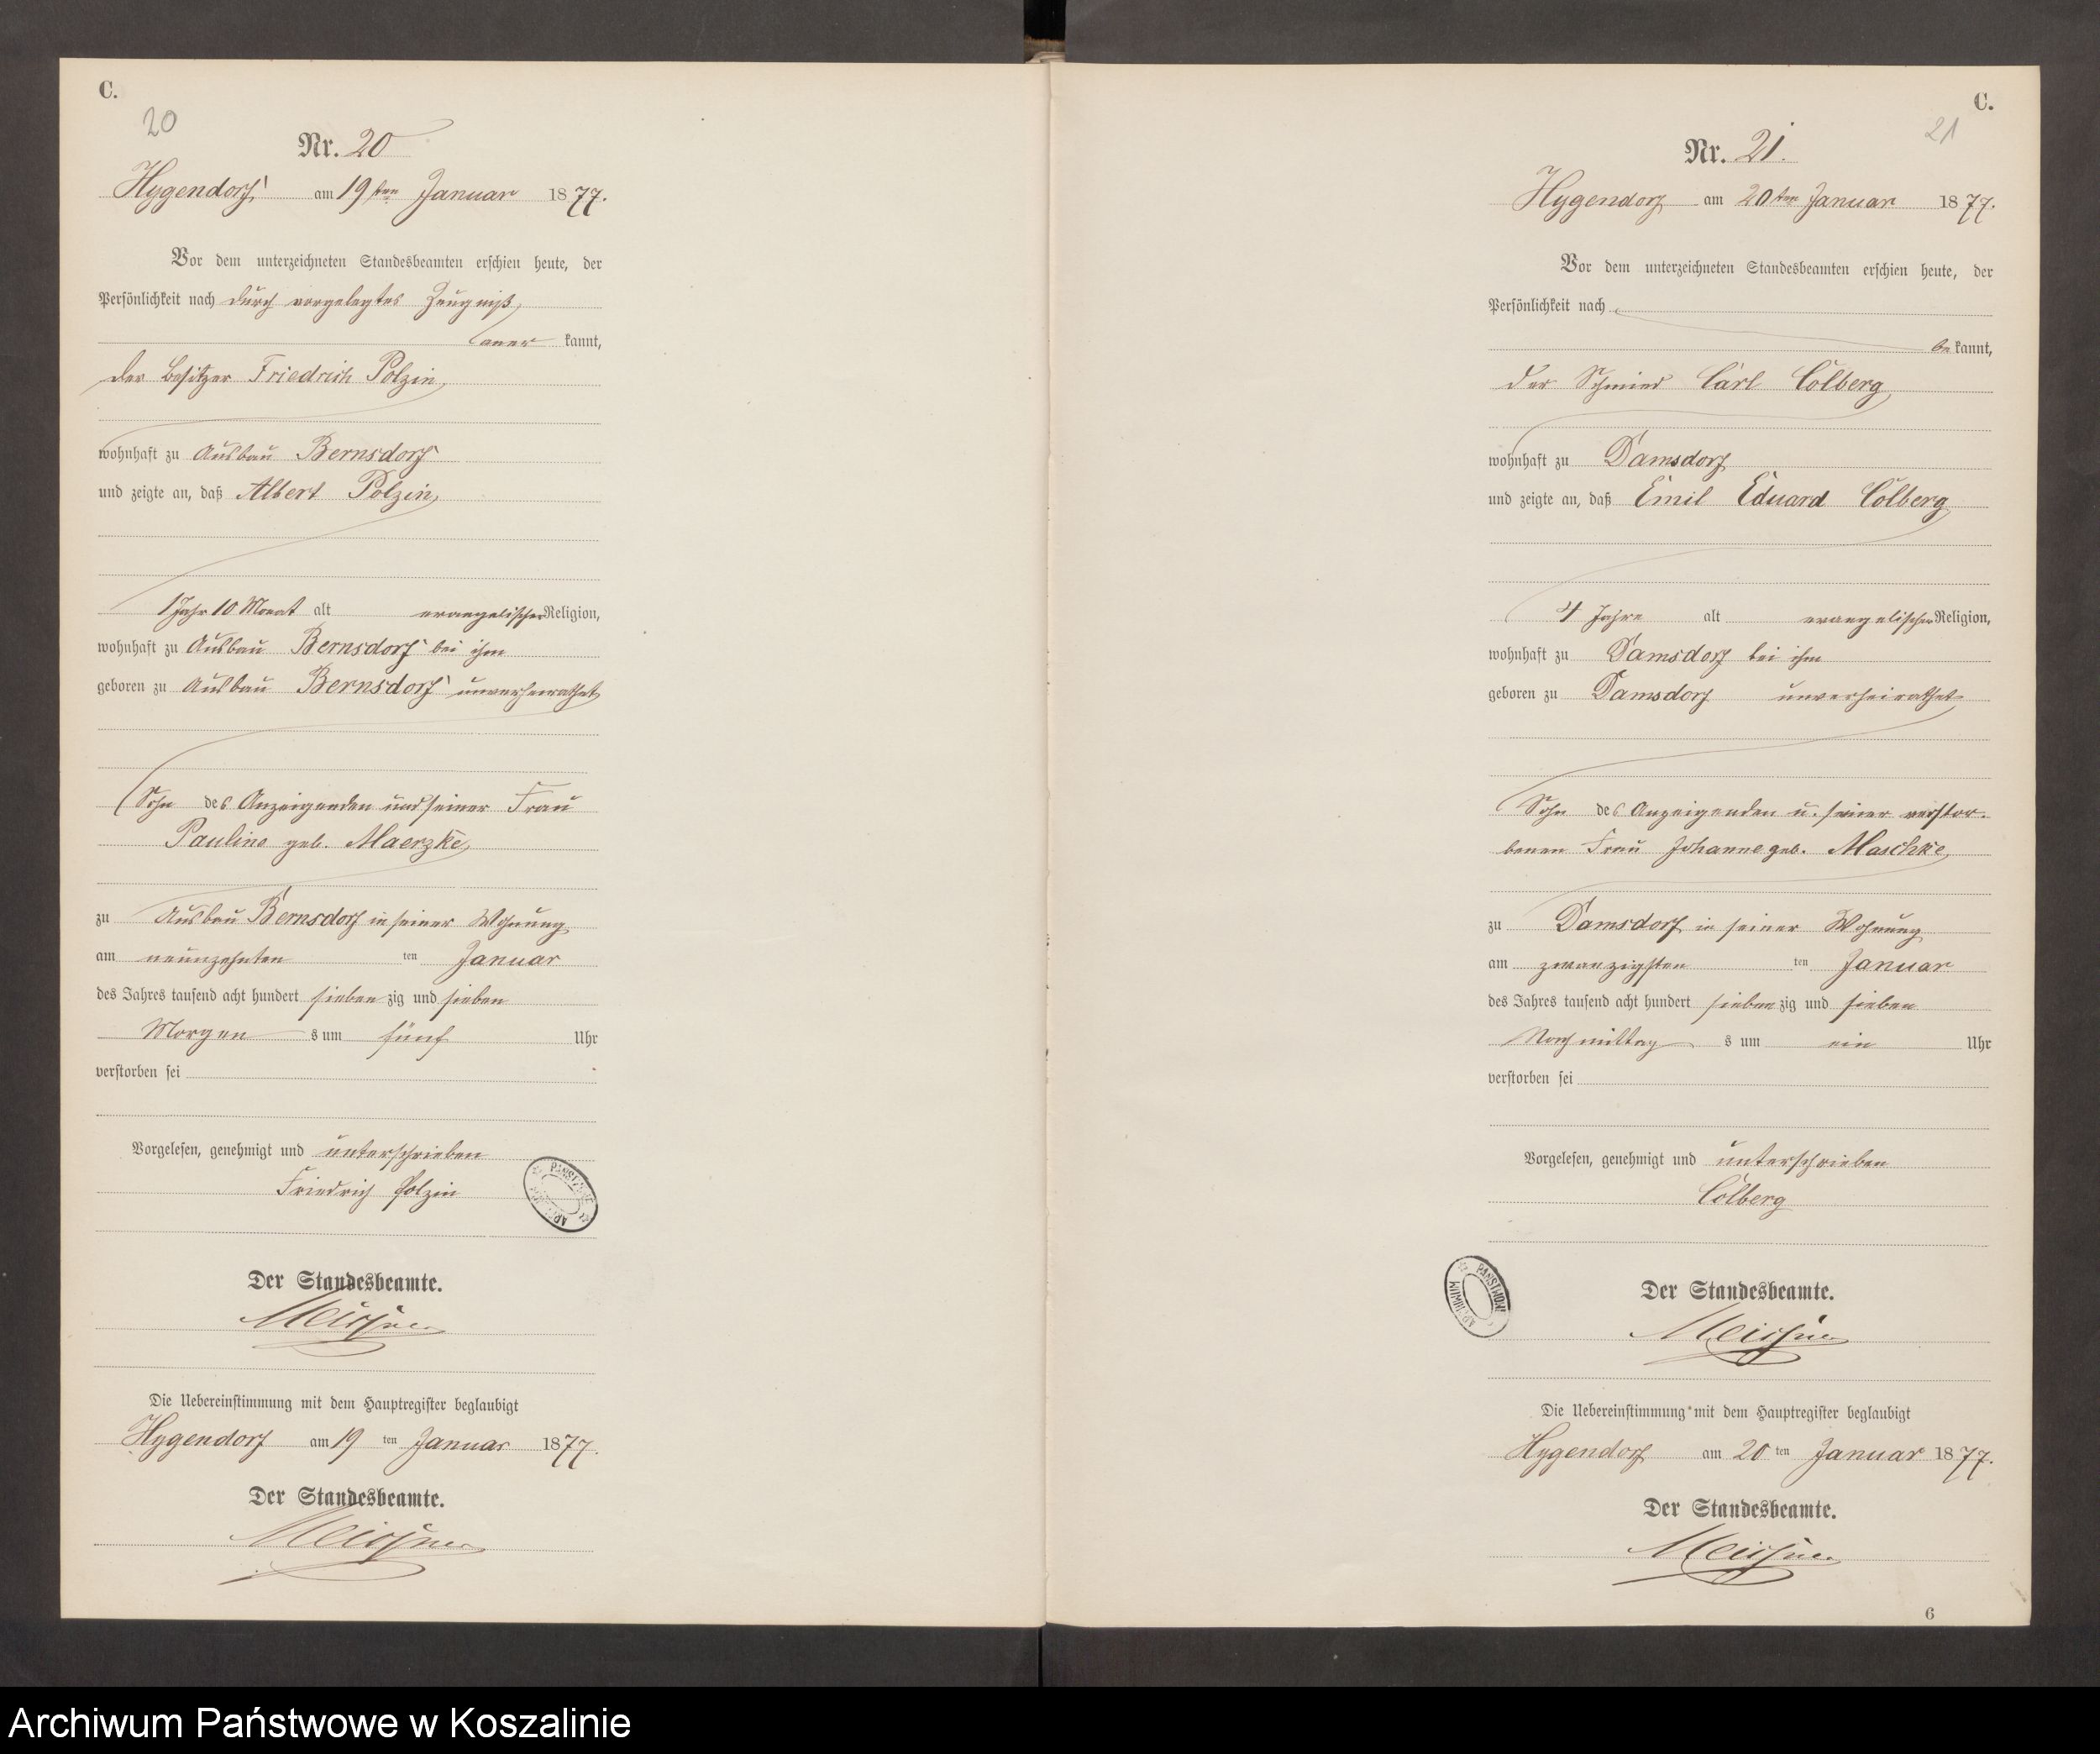 C.
20
Nr. 20
Hygendorf am 19ten Januar 1877.
Vor dem unterzeichneten Standesbeamten erschien heute, der
Persönlichkeit nach durch vorgelegtes Zeugniß,
aner kannt,
der Besitzer Friedrich Polzin,
wohnhaft zu Ausbau Bernsdorf
und zeigte an, daß Albert Polzin,
1 Jahr 10 Monat alt evangelischer Religion,
wohnhaft zu Ausbau Bernsdorf bei ihm
geboren zu Ausbau Bernsdorf unverheirathet
Sohn des Anzeigenden und seiner Frau
Pauline geb. Maerzke,
zu Ausbau Bernsdorf in seiner Wohnung
am neunzehnten ten Januar
des Jahres tausend acht hundert sieben zig und sieben
Morgen s um fünf Uhr
verstorben sei
Vorgelesen, genehmigt und unterschrieben
Friedrich Polzin
Der Standesbeamte.
Die Uebereinstimmung mit dem Hauptregister beglaubigt
Hygendorf am 19 ten Januar 1877.
Der Standesbeamte.
C.
21
Nr. 21.
Hygendorf am 20ten Januar 1877.
Vor dem unterzeichneten Standesbeamten erschien heute, der
Persönlichkeit nach
be kannt,
der Schmied Carl Colberg,
wohnhaft zu Damsdorf
und zeigte an, daß Emil Eduard Colberg
4 Jahre alt evangelischer Religion,
wohnhaft zu Damsdorf bei ihm
geboren zu Damsdorf unverheirathet
Sohn des Anzeigenden u. seiner verstor-
benen Frau Johanne geb. Maschke,
zu Damsdorf in seiner Wohnung
am zwanzigsten ten Januar
des Jahres tausend acht hundert sieben zig und sieben
Nachmittag s um ein Uhr
verstorben sei
Vorgelesen, genehmigt und unterschrieben
Colberg
ARCHIWUM PAŃSTWOWE
Der Standesbeamte.
Die Uebereinstimmung mit dem Hauptregister beglaubigt
Hygendorf am 20 ten Januar 1877.
Der Standesbeamte.
6
Archiwum Państwowe w Koszalinie